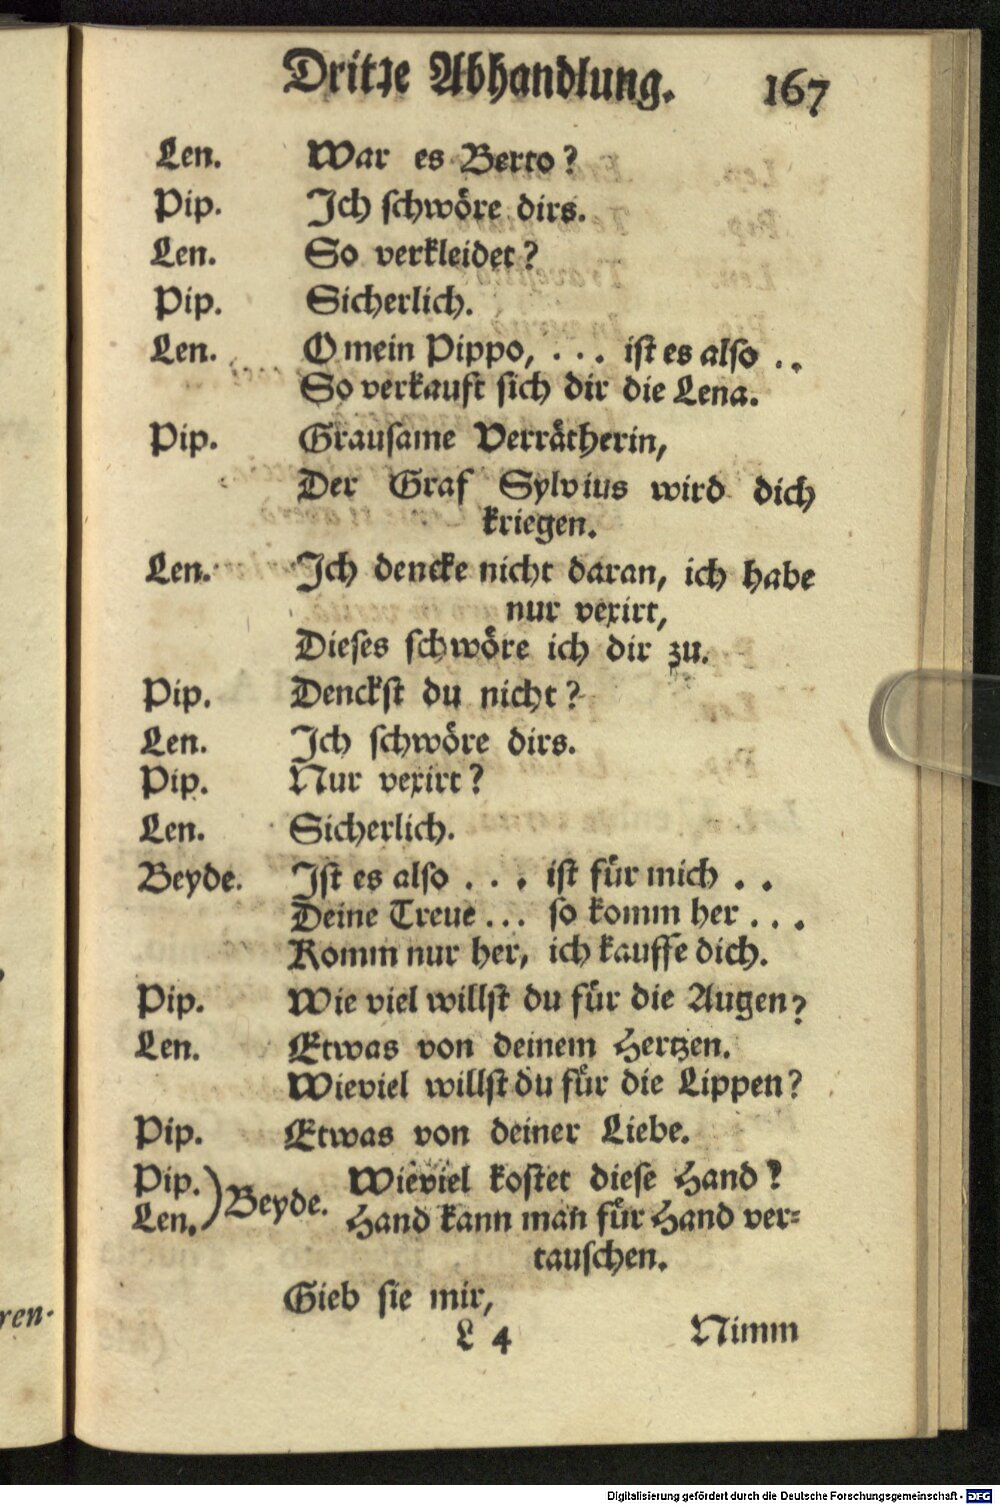 Dritte Abhandlung. 167
Len. War es Berto?
Pip. Ich schwöre dirs.
Len. So verkleidet?
Pip. Sicherlich.
Len. O mein Pippo, . . . ist es also . .
So verkauft sich dir die Lena.
Pip. Grausame Verrätherin,
Der Graf Sylvius wird dich
kriegen.
Len. Ich dencke nicht daran, ich habe
nur vexirt,
Dieses schwöre ich dir zu.
Pip. Denckst du nicht?
Len. Ich schwöre dirs.
Pip. Nur vexirt?
Len. Sicherlich.
Beyde. Ist es also . . . ist für mich . .
Deine Treue . . . so komm her . . .
Komm nur her, ich kauffe dich.
Pip. Wie viel willst du für die Augen?
Len. Etwas von deinem Hertzen.
Wieviel willst du für die Lippen?
Pip. Etwas von deiner Liebe.
Pip.
Len. ) Beyde. Wieviel kostet diese Hand?
Hand kann man für Hand ver=
tauschen.
Gieb sie mir,
L 4 Nimm
ren-
Digitalisierung gefördert durch die Deutsche Forschungsgemeinschaft - DFG